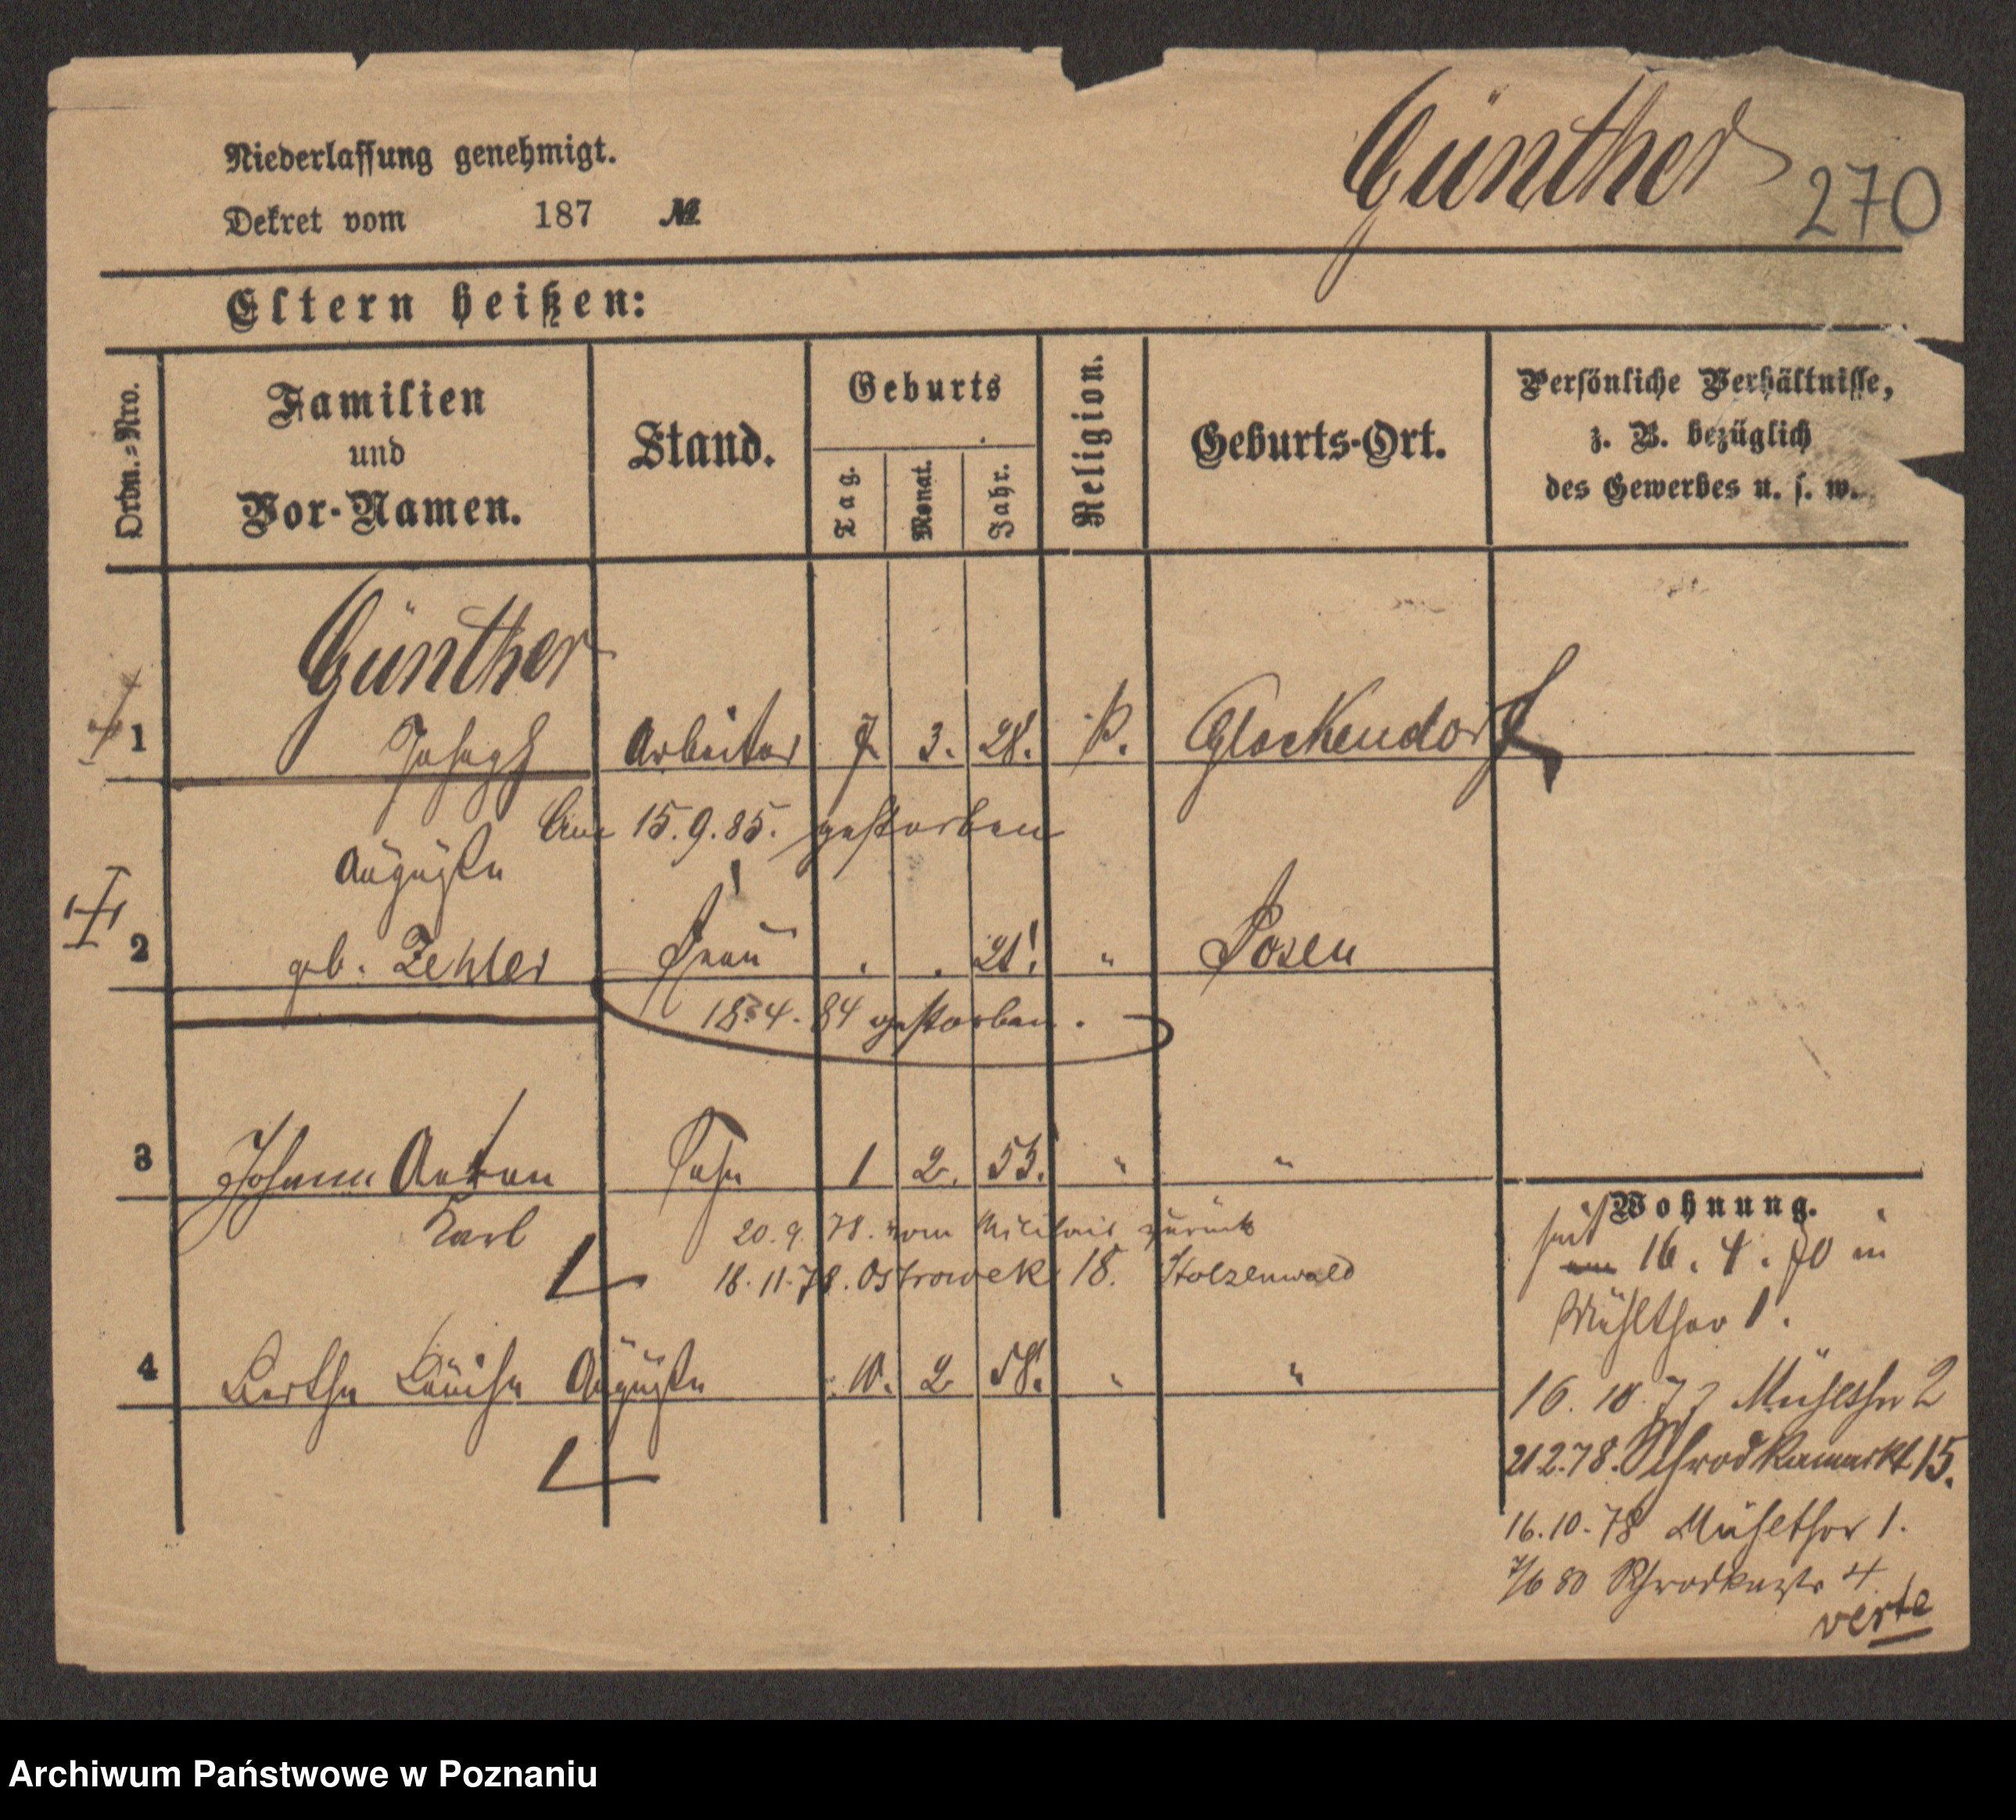 Günther
270
Niederlassung genehmigt.
Dekret vom 187 №
Eltern heißen:
Ordn.-Nro.
Familien
und
Vor-Namen.
Stand.
Geburts
Tag.
Monat.
Jahr.
Religion.
Geburts-Ort.
Persönliche Verhältnisse,
z. B. bezüglich
des Gewerbes u. s. w.
Günther
1 Joseph Arbeiter 7 3. 28. k. Glockendorf
Am 15.9.85. gestorben
Auguste
2 geb. Zehler Frau . . 21. " Posen
4. 84 gestorben.
3 Johann Anton Sohn 1 2. 53. " "
Karl
20. 9. 78. vom Militair zurück
18. 11. 78. Ostrowek 18. Stolzenwald
4 Bertha Louise Auguste 10. 2 58. " "
Wohnung.
seit
am 16. 4. 70 in
Mühlthor 1.
16. 10. 77 Mühlthor 2
21.2.78. Schrodkamarkt 15.
16.10.78 Mühlthor 1.
7/6 80 4
verte
Archiwum Państwowe w Poznaniu